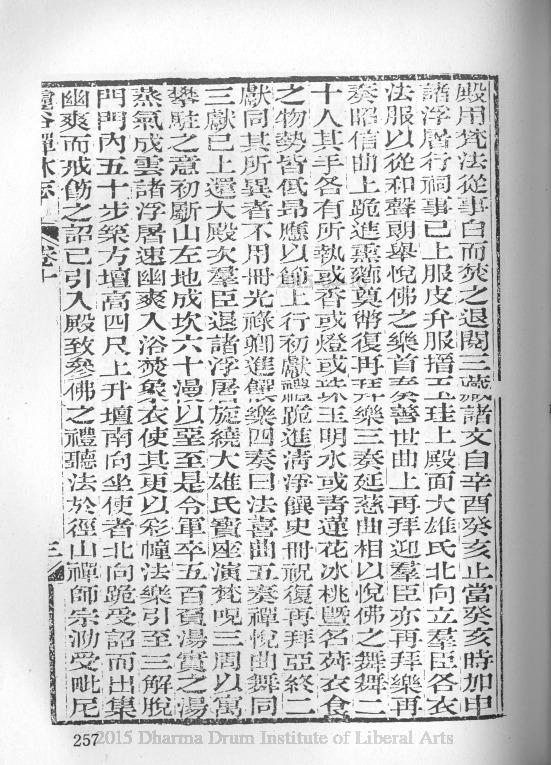 殿用梵法從事白而焚之退閱三藏諸文自辛酉癸亥止當癸亥時加申
諸浮屠行祠事已上服皮弁服搢玉珪上殿面大雄氏北向立羣臣各衣
法服以從和聲朗舉悅佛之樂首奏善世曲上再拜迎羣臣亦再拜樂再
奏昭信曲上跪進熏薌奠幣復再拜樂三奏延慈曲相以悅佛之舞舞二
十人其手各有所執或香或燈或珠玉明水或青蓮花冰桃曁名荈衣食
之物勢皆低昂應以節上行初獻禮跪進清淨饌史冊祝復再拜亞終二
獻同其所異者不用冊光祿卿進饌樂四奏曰法喜曲五奏禪悅曲舞同
三獻已上還大殿次羣臣退諸浮屠旋繞大雄氏寶座演梵唄三周以寓
攀駐之意初斸山左地成坎六十漫以堊至是令軍卒五百負湯實之湯
蒸氣成雲諸浮屠速幽爽入浴焚象衣使其更以彩幢法樂引至三解脫
門門內五十步築方壇高四尺上升壇南向坐使者北向跪受詔而出集
幽爽而戒飭之詔已引入殿致參佛之禮聽法於徑山禪師宗泐受毗尼
靈谷禪林志 卷十 三
257
2015 Dharma Drum Institute of Liberal Arts